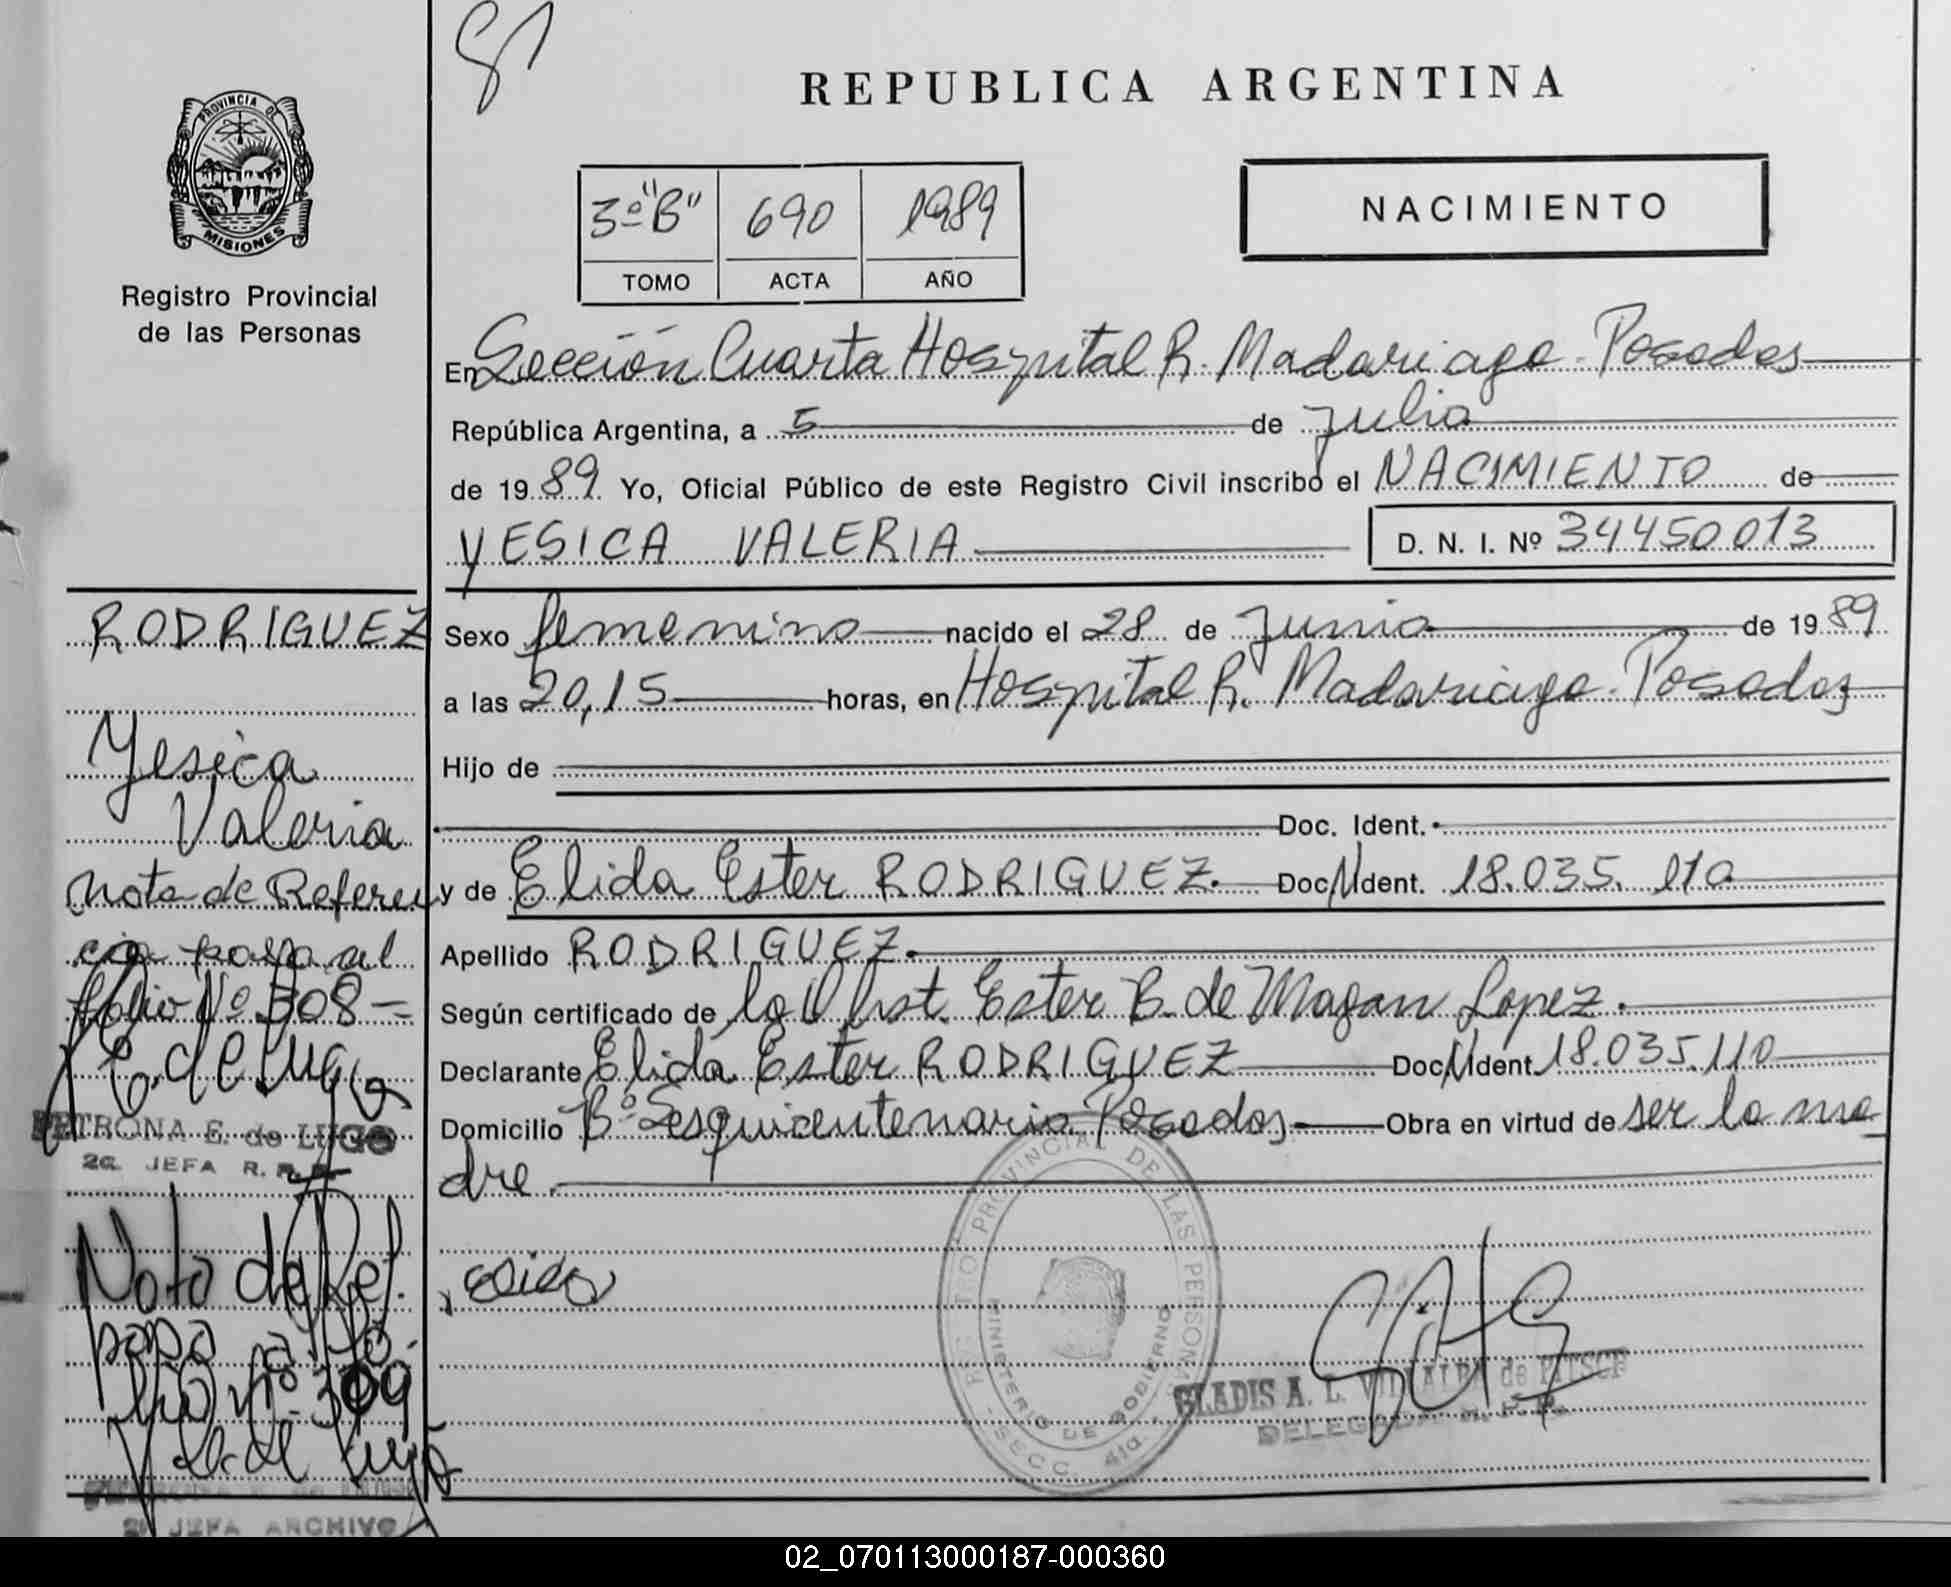 81
REPUBLICA ARGENTINA
PROVINCIA DE
MISIONES
Registro Provincial
de las Personas
3º "B" 690 1989
TOMO ACTA AÑO
NACIMIENTO
En Sección Cuarta Hospital R. Madariaga - Posadas
República Argentina, a 5 de julio
de 1989. Yo, Oficial Público de este Registro Civil inscribo el NACIMIENTO de
YESICA VALERIA D. N. I. Nº 34450013
Sexo femenino nacido el 28 de Junio de 1989
a las 20,15 horas, en Hospital R. Madariaga - Posadas
Hijo de
Doc. Ident.
y de Elida Ester RODRIGUEZ. Doc. Ident. 18.035.110
Apellido RODRIGUEZ.
Según certificado de la Obst. Ester B. de Magan Lopez.
Declarante Elida Ester RODRIGUEZ Doc. Ident. 18.035.110
Domicilio Bº Sesquicentenario Posadas Obra en virtud de ser la ma
dre
Elida
REGISTRO PROVINCIAL DE LAS PERSONAS
MINISTERIO DE GOBIERNO
- SECC. 4ta. -
GLADIS A. L. VILLALBA de
DELEGADA R. P. P.
RODRIGUEZ
Yesica
Valeria
Nota de Referen
cia pasa al
folio Nº 308 -
E. de Lugo
PETRONA E. de LUGO
2a. JEFA R. P. P.
Nota de Ref.
pasa a fo
lio nº 309
de Lugo
2a JEFA ARCHIVO
02_070113000187-000360